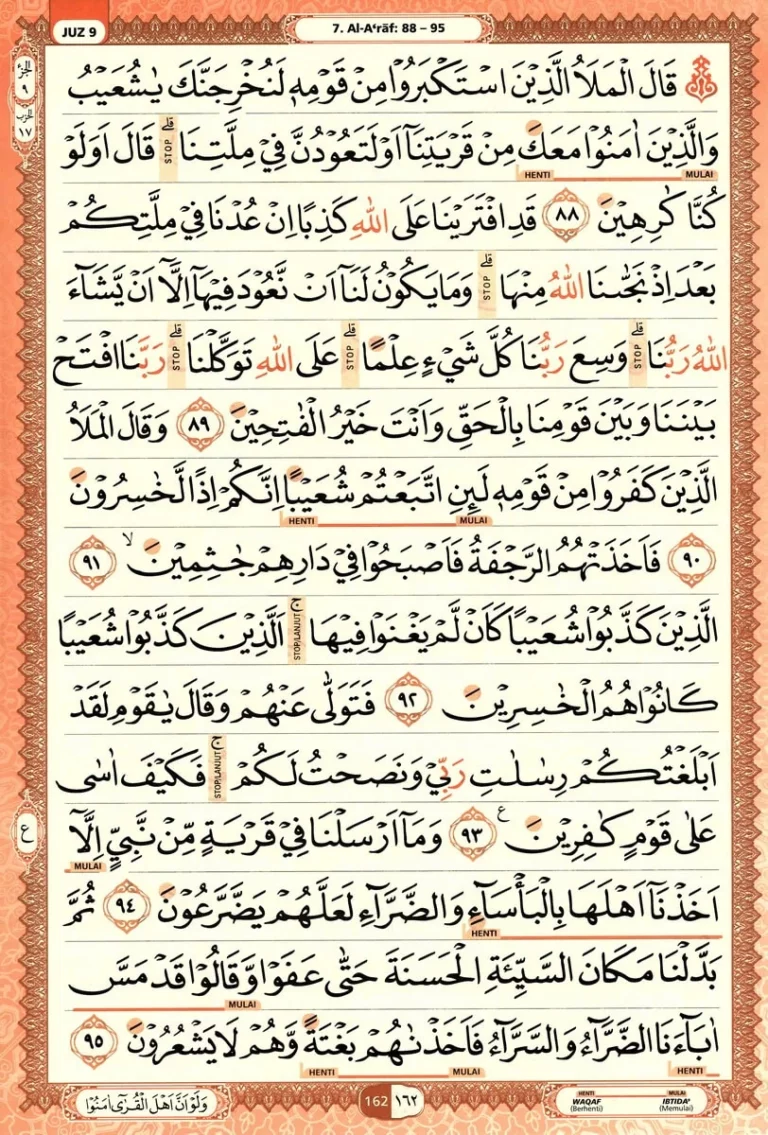 JUZ 9
7. Al-A‘rāf: 88 – 95
الجزء
٩
الحزب
١٧
قَالَ الْمَلَاُ الَّذِيْنَ اسْتَكْبَرُوْا مِنْ قَوْمِهٖ لَنُخْرِجَنَّكَ يٰشُعَيْبُ
وَالَّذِيْنَ اٰمَنُوْا مَعَكَ مِنْ قَرْيَتِنَآ اَوْ لَتَعُوْدُنَّ فِيْ مِلَّتِنَاۗ STOP قَالَ اَوَلَوْ
HENTI MULAI
كُنَّا كٰرِهِيْنَ ٨٨ قَدِ افْتَرَيْنَا عَلَى اللّٰهِ كَذِبًا اِنْ عُدْنَا فِيْ مِلَّتِكُمْ
بَعْدَ اِذْ نَجّٰىنَا اللّٰهُ مِنْهَاۗ STOP وَمَا يَكُوْنُ لَنَآ اَنْ نَّعُوْدَ فِيْهَآ اِلَّآ اَنْ يَّشَاۤءَ
اللّٰهُ رَبُّنَاۗ STOP وَسِعَ رَبُّنَا كُلَّ شَيْءٍ عِلْمًاۗ STOP عَلَى اللّٰهِ تَوَكَّلْنَاۗ STOP رَبَّنَا افْتَحْ
بَيْنَنَا وَبَيْنَ قَوْمِنَا بِالْحَقِّ وَاَنْتَ خَيْرُ الْفٰتِحِيْنَ ٨٩ وَقَالَ الْمَلَاُ
الَّذِيْنَ كَفَرُوْا مِنْ قَوْمِهٖ لَىِٕنِ اتَّبَعْتُمْ شُعَيْبًا اِنَّكُمْ اِذًا لَّخٰسِرُوْنَ
HENTI MULAI
٩٠ فَاَخَذَتْهُمُ الرَّجْفَةُ فَاَصْبَحُوْا فِيْ دَارِهِمْ جٰثِمِيْنَۙ ٩١
الَّذِيْنَ كَذَّبُوْا شُعَيْبًا كَاَنْ لَّمْ يَغْنَوْا فِيْهَاۚ STOP/LANJUT اَلَّذِيْنَ كَذَّبُوْا شُعَيْبًا
كَانُوْا هُمُ الْخٰسِرِيْنَ ٩٢ فَتَوَلّٰى عَنْهُمْ وَقَالَ يٰقَوْمِ لَقَدْ
اَبْلَغْتُكُمْ رِسٰلٰتِ رَبِّيْ وَنَصَحْتُ لَكُمْۚ STOP/LANJUT فَكَيْفَ اٰسٰى
عَلٰى قَوْمٍ كٰفِرِيْنَ ࣖ ٩٣ وَمَآ اَرْسَلْنَا فِيْ قَرْيَةٍ مِّنْ نَّبِيٍّ اِلَّآ
ع
MULAI
اَخَذْنَآ اَهْلَهَا بِالْبَأْسَاۤءِ وَالضَّرَّاۤءِ لَعَلَّهُمْ يَضَّرَّعُوْنَ ٩٤ ثُمَّ
HENTI
بَدَّلْنَا مَكَانَ السَّيِّئَةِ الْحَسَنَةَ حَتّٰى عَفَوْا وَّقَالُوْا قَدْ مَسَّ
MULAI
اٰبَاۤءَنَا الضَّرَّاۤءُ وَالسَّرَّاۤءُ فَاَخَذْنٰهُمْ بَغْتَةً وَّهُمْ لَا يَشْعُرُوْنَ ٩٥
HENTI MULAI HENTI
وَلَوْ اَنَّ اَهْلَ الْقُرٰٓى اٰمَنُوْا
162 ١٦٢
HENTI WAQAF (Berhenti)
MULAI IBTIDA' (Memulai)